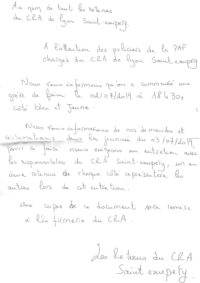 Au nom de tout les retenus
du CRA de Lyon Saint-exupéry.
A l'attention des policiers de la PAF
chargés du CRA de Lyon Saint Exupéry
Nous vous informons qu'on a commencé une
grève de faim le 02/07/2019 à 18h30,
côté bleu et jaune.
Nous vous informerons de nos demandes et
dans la journée du 03/07/2019
pour ce faire nous exigeons un entretien avec
les responsables du CRA Saint-exupéry, un ou
deux retenus de chaque côté représentera les
autres lors de cet entretien.
Une copie de ce document sera remise
à l'infirmerie du CRA.
Les Retenus du CRA
Saint exupéry.